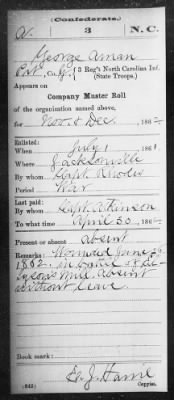 (Confederate.)
A. 3 N.C.
George Aman
Pvt, Co. G, 3 Reg't North Carolina Inf.
(State Troops.)
Appears on
Company Muster Roll
of the organization named above,
for Nov & Dec, 186
Enlisted:
When July 1 186
Where Jacksonville
By whom Capt Rhodes
Period War
Last paid:
By whom Capt. Atkinson
To what time April 30, 186
Present or absent absent
Remarks: Wounded June 26
1862. in battle of El-
lyson's Mill. absent
without leave.
Book mark:
(642) Copyist.